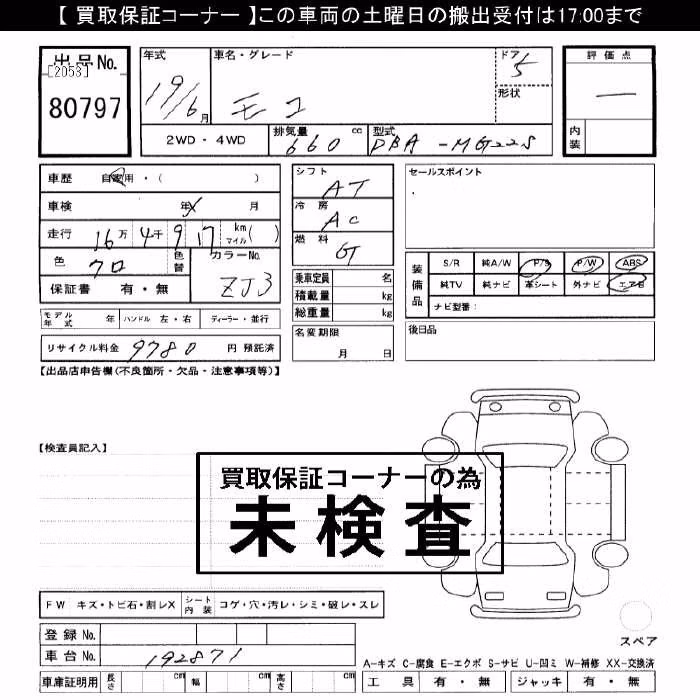 【 買取保証コーナー 】この車両の土曜日の搬出受付は17:00まで
出品No.
[2053]
80797
年式
19/6月
車名・グレード
モコ
ドア
5
形状
評価点
—
内装
2WD・4WD
排気量
660 cc
型式
DBA-MG22S
車歴 自家用・( )
車検 年 月
走行 16万 4千 9 17 km マイル ( )
色 クロ
色替
カラーNo.
ZJ3
保証書 有・無
モデル年式 年
ハンドル 左・右
ディーラー・並行
リサイクル料金 9780 円 預託済
シフト
AT
冷房
AC
燃料
G
乗車定員 名
積載量 kg
総重量 kg
名変期限
月 日
セールスポイント
装備品
S/R 純A/W P/S P/W ABS
純TV 純ナビ 革シート 外ナビ エアB
ナビ型番:
後日品
【出品店申告欄(不良箇所・欠品・注意事項等)】
【検査員記入】
買取保証コーナーの為
未検査
FW キズ・トビ石・割レX
シート内装 コゲ・穴・汚レ・シミ・破レ・スレ
登録No.
車台No. 192871
車庫証明用 長さ cm 幅 cm 高さ cm
スペア
A-キズ C-腐食 E-エクボ S-サビ U-凹ミ W-補修 XX-交換済
工具 有・無 ジャッキ 有・無